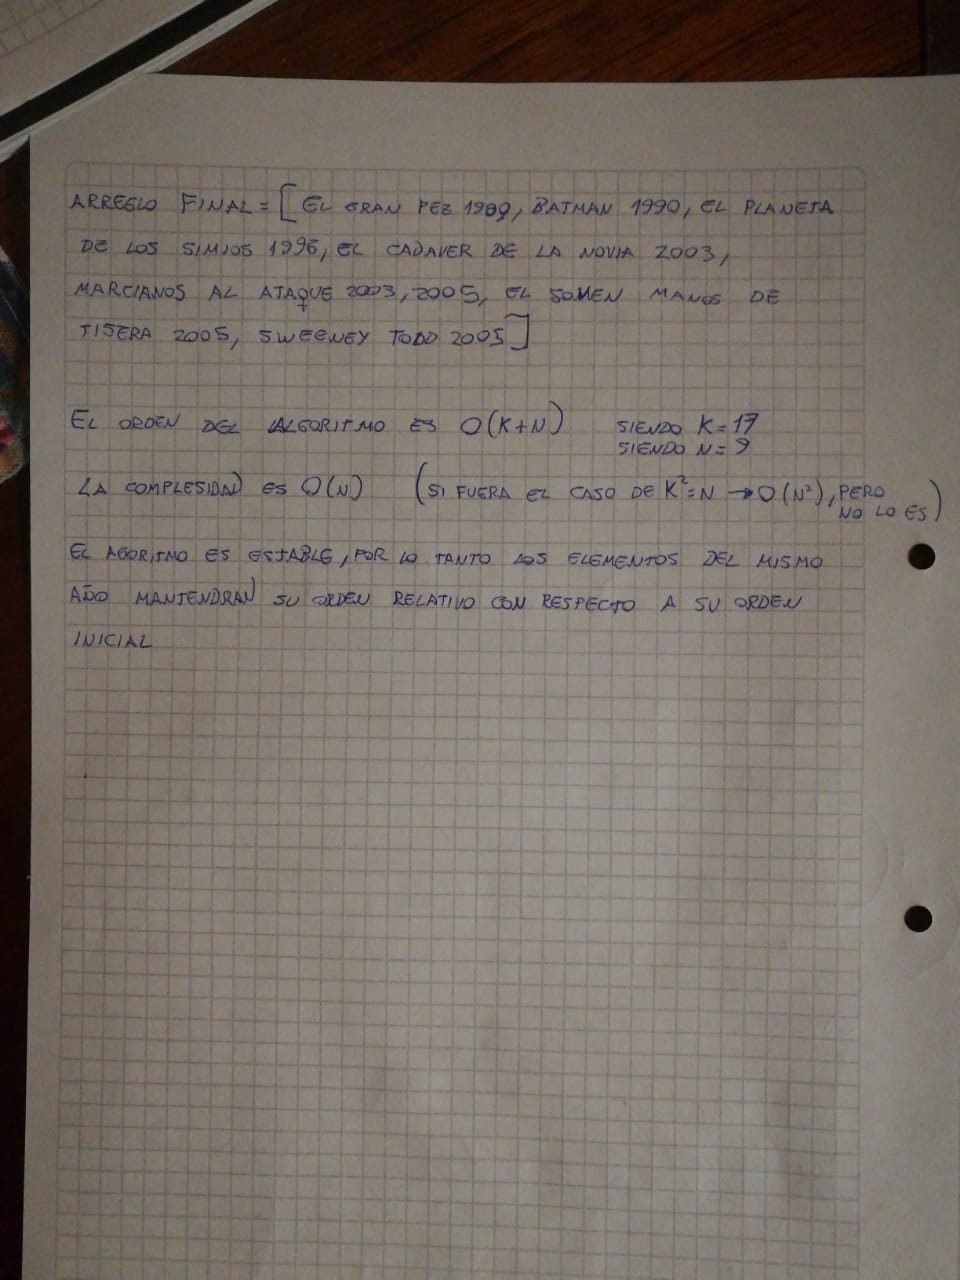 ARREGLO FINAL = [ EL GRAN PEZ 1989, BATMAN 1990, EL PLANETA
DE LOS SIMIOS 1996, EL CADAVER DE LA NOVIA 2003,
MARCIANOS AL ATAQUE 2003, 2005, EL SOMEN MANOS DE
TISERA 2005, SWEENEY TODD 2005 ]
EL ORDEN DEL ALGORITMO ES O(K+N) SIENDO K=17
SIENDO N=9
LA COMPLESIDAD ES O(N) (SI FUERA EL CASO DE K²=N → O(N²), PERO
NO LO ES)
EL AGORITMO ES ESTABLE, POR LO TANTO LOS ELEMENTOS DEL MISMO
AÑO MANTENDRAN SU ORDEN RELATIVO CON RESPECTO A SU ORDEN
INICIAL